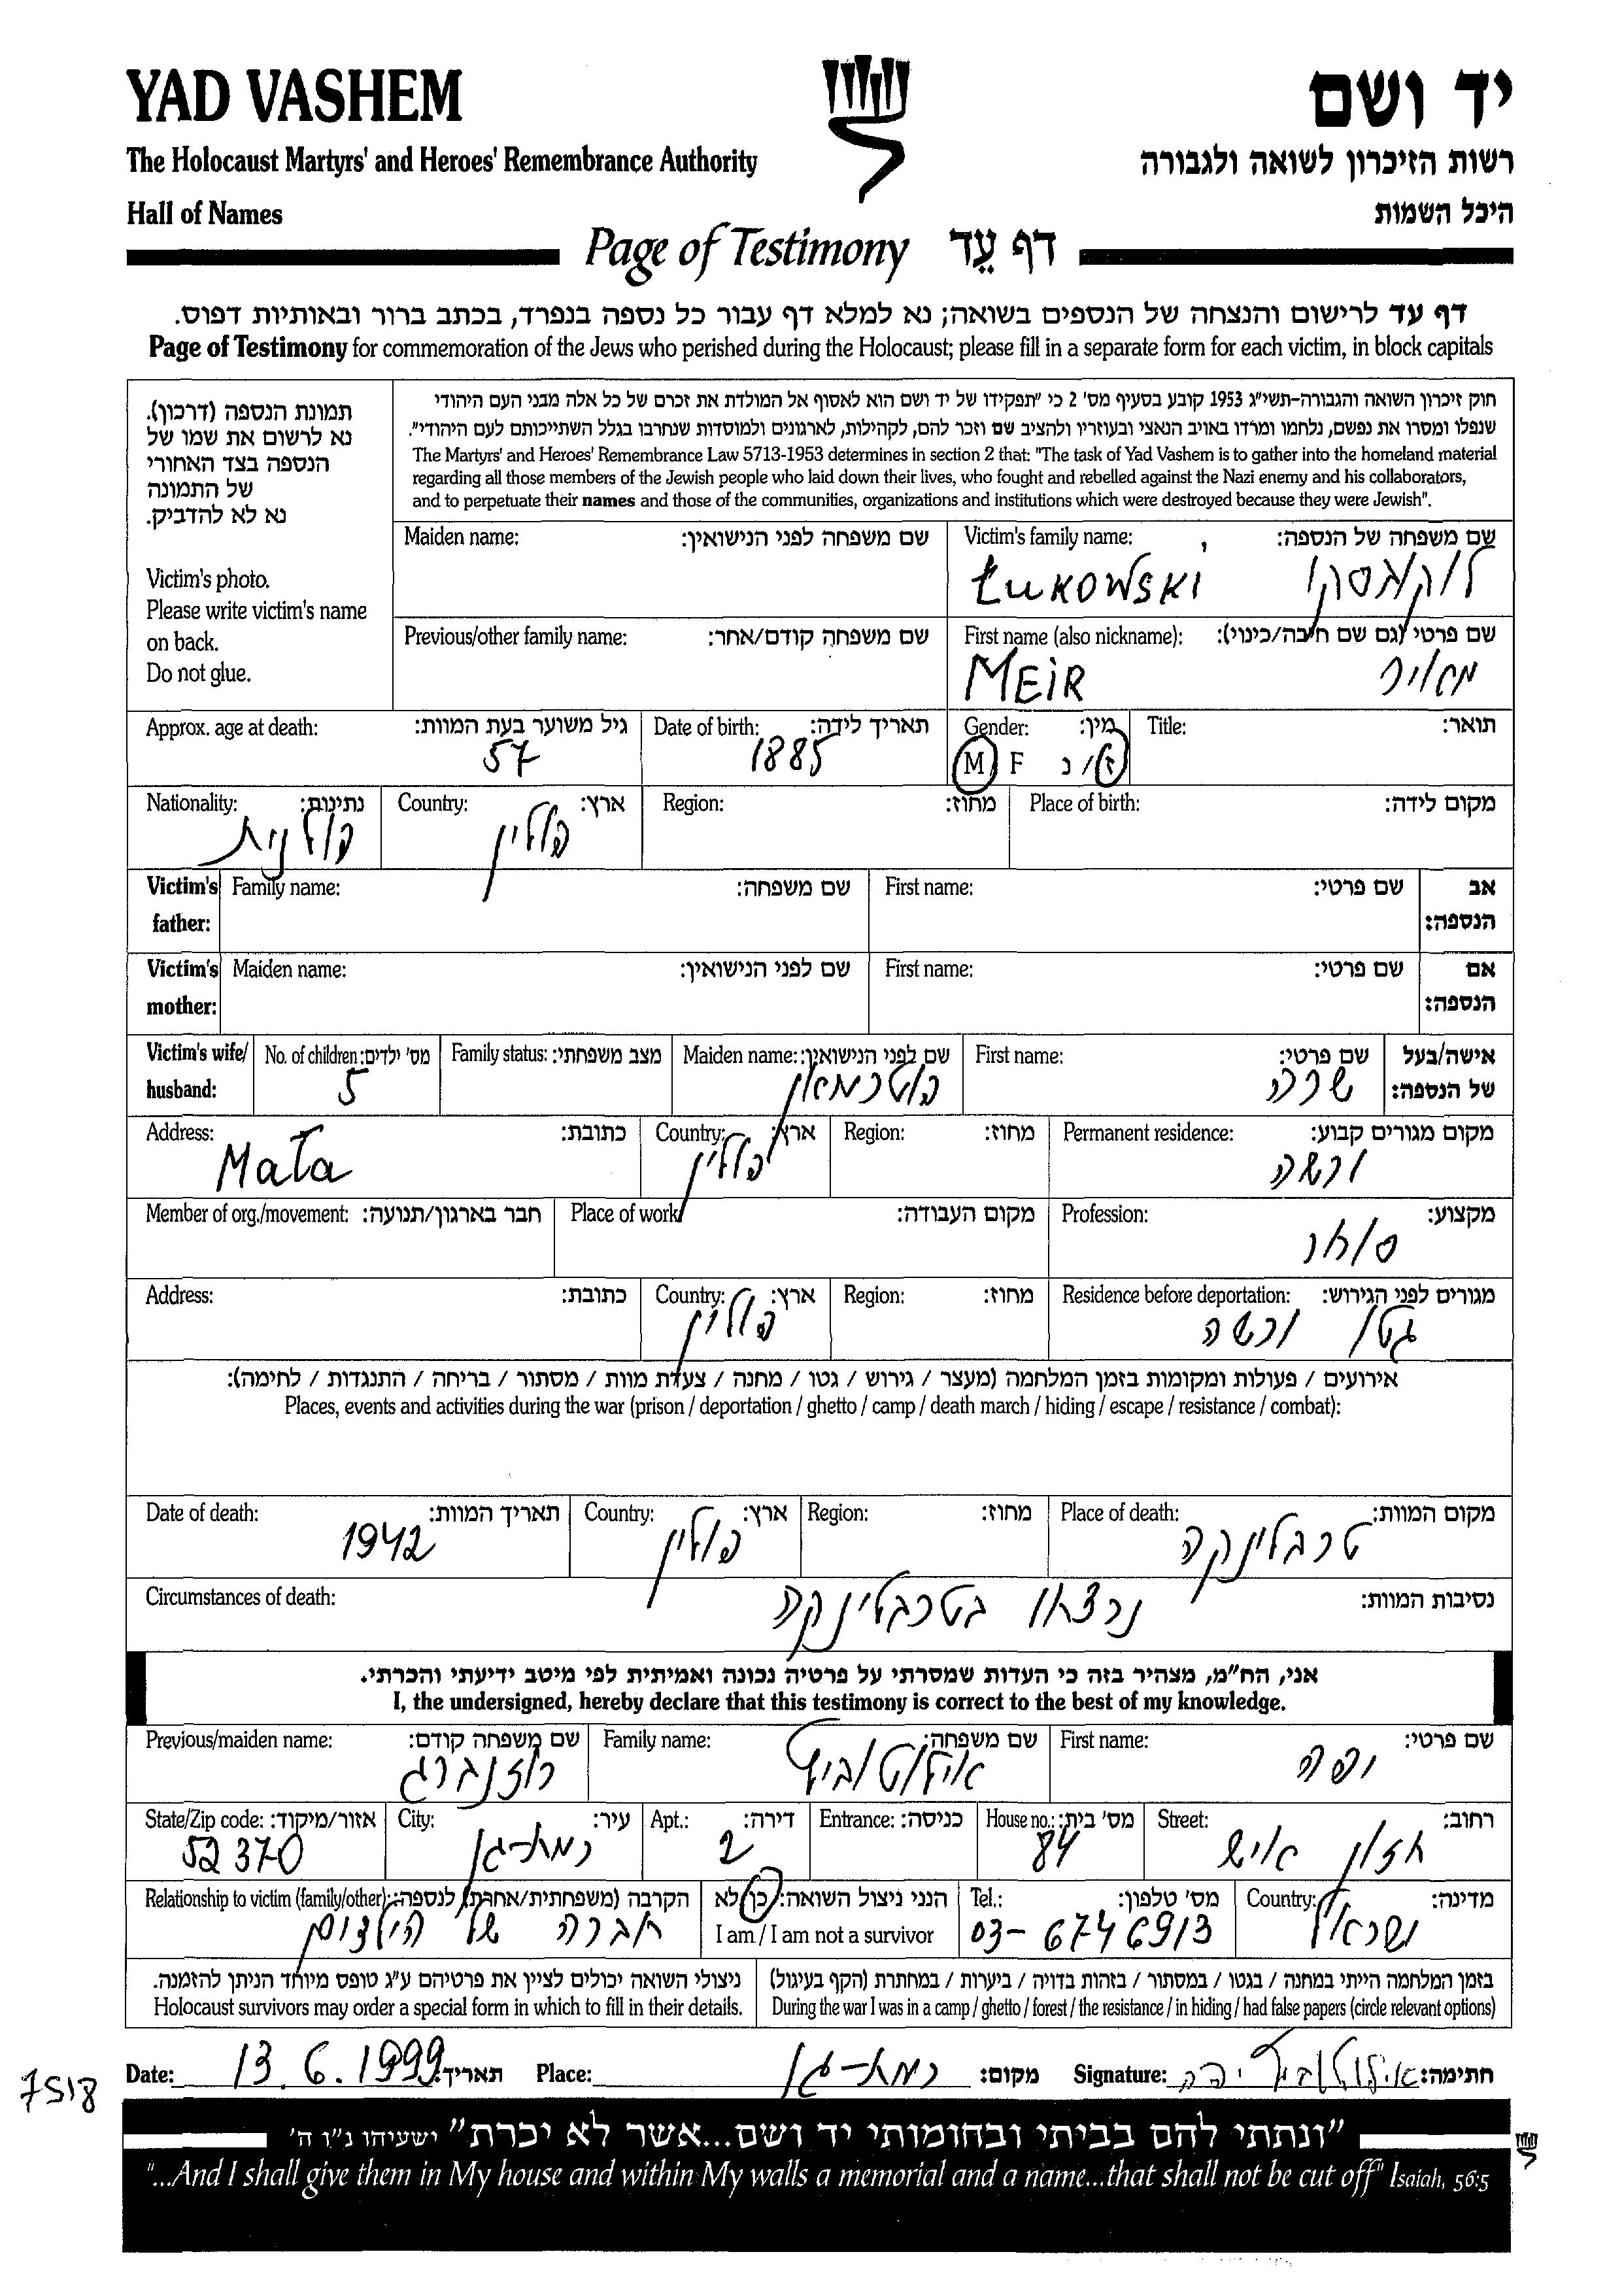 YAD VASHEM
יד ושם
The Holocaust Martyrs' and Heroes' Remembrance Authority
רשות הזיכרון לשואה ולגבורה
Hall of Names
היכל השמות
Page of Testimony דף עֵד
דף עד לרישום והנצחה של הנספים בשואה; נא למלא דף עבור כל נספה בנפרד, בכתב ברור ובאותיות דפוס.
Page of Testimony for commemoration of the Jews who perished during the Holocaust; please fill in a separate form for each victim, in block capitals
תמונת הנספה (דרכון).
נא לרשום את שמו של
הנספה בצד האחורי
של התמונה
נא לא להדביק.
Victim's photo.
Please write victim's name
on back.
Do not glue.
חוק זיכרון השואה והגבורה-תשי"ג 1953 קובע בסעיף מס' 2 כי "תפקידו של יד ושם הוא לאסוף אל המולדת את זכרם של כל אלה מבני העם היהודי
שנפלו ומסרו את נפשם, נלחמו ומרדו באויב הנאצי ובעוזריו ולהציב שם וזכר להם, לקהילות, לארגונים ולמוסדות שנחרבו בגלל השתייכותם לעם היהודי".
The Martyrs' and Heroes' Remembrance Law 5713-1953 determines in section 2 that: "The task of Yad Vashem is to gather into the homeland material
regarding all those members of the Jewish people who laid down their lives, who fought and rebelled against the Nazi enemy and his collaborators,
and to perpetuate their names and those of the communities, organizations and institutions which were destroyed because they were Jewish".
Maiden name: שם משפחה לפני הנישואין:
Victim's family name: שם משפחה של הנספה:
ŁUKOWSKI לוקאווסקי
Previous/other family name: שם משפחה קודם/אחר:
First name (also nickname): שם פרטי (גם שם חיבה/כינוי):
MEIR מאיר
Approx. age at death: גיל משוער בעת המוות:
57
Date of birth: תאריך לידה:
1885
Gender: מין:
M F ז/נ
Title: תואר:
Nationality: נתינות:
פולנית
Country: ארץ:
פולין
Region: מחוז:
Place of birth: מקום לידה:
Victim's father: Family name: שם משפחה: First name: שם פרטי: אב הנספה:
Victim's mother: Maiden name: שם לפני הנישואין: First name: שם פרטי: אם הנספה:
Victim's wife/husband: No. of children: מס' ילדים:
5
Family status: מצב משפחתי:
Maiden name: שם לפני הנישואין:
First name: שם פרטי:
שרה
אישה/בעל של הנספה:
Address: כתובת:
Mała
Country: ארץ:
פולין
Region: מחוז:
Permanent residence: מקום מגורים קבוע:
ורשה
Member of org./movement: חבר בארגון/תנועה:
Place of work: מקום העבודה:
Profession: מקצוע:
סוחר
Address: כתובת:
Country: ארץ:
פולין
Region: מחוז:
Residence before deportation: מגורים לפני הגירוש:
גטו ורשה
אירועים / פעולות ומקומות בזמן המלחמה (מעצר / גירוש / גטו / מחנה / צעדת מוות / מסתור / בריחה / התנגדות / לחימה):
Places, events and activities during the war (prison / deportation / ghetto / camp / death march / hiding / escape / resistance / combat):
Date of death: תאריך המוות:
1942
Country: ארץ:
פולין
Region: מחוז:
Place of death: מקום המוות:
טרבלינקה
Circumstances of death: נסיבות המוות:
נרצאו בטרבלינקה
אני, הח"מ, מצהיר בזה כי העדות שמסרתי על פרטיה נכונה ואמיתית לפי מיטב ידיעתי והכרתי.
I, the undersigned, hereby declare that this testimony is correct to the best of my knowledge.
Previous/maiden name: שם משפחה קודם:
רוזנברג
Family name: שם משפחה:
First name: שם פרטי:
יפה
State/Zip code: אזור/מיקוד:
52370
City: עיר:
רמת-גן
Apt.: דירה:
2
Entrance: כניסה:
House no.: מס' בית:
84
Street: רחוב:
חזון איש
Relationship to victim (family/other): הקרבה (משפחתית/אחרת) לנספה:
חברה של
הנני ניצול השואה: כן/לא
I am / I am not a survivor
Tel.: מס' טלפון:
03-6746913
Country: מדינה:
ישראל
ניצולי השואה יכולים לציין את פרטיהם ע"ג טופס מיוחד הניתן להזמנה.
Holocaust survivors may order a special form in which to fill in their details.
בזמן המלחמה הייתי במחנה / בגטו / במסתור / בזהות בדויה / ביערות / במחתרת (הקף בעיגול)
During the war I was in a camp / ghetto / forest / the resistance / in hiding / had false papers (circle relevant options)
Date: 13.6.1999 תאריך: Place: רמת-גן מקום: Signature: חתימה:
"ונתתי להם בביתי ובחומותי יד ושם...אשר לא יכרת" ישעיהו נ"ו ה'
"...And I shall give them in My house and within My walls a memorial and a name...that shall not be cut off" Isaiah, 56:5